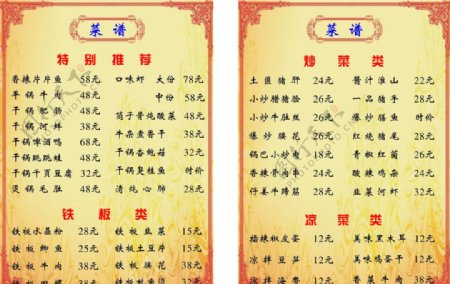 菜谱
特别推荐
香辣片片鱼 58元 口味虾 大份 78元
干锅牛肉 48元 中份 58元
干锅肥肠 48元 筒子骨炖酸菜 48元
干锅河蚌 38元 牛杂煮香干 38元
干锅啤酒鸭 68元 干锅杏鲍菇 32元
干锅跳跳蛙 48元 干锅臭桂鱼 时价
干锅千页豆腐 32元 清炖心肺 28元
烫锅毛肚 48元
铁板类
铁板水晶粉 28元 铁板韭菜 15元
铁板鲫鱼 25元 铁板土豆片 15元
铁板牛肉 38元 铁板腰花 38元
菜谱
炒菜类
土匪猪肝 24元 酱汁淮山 22元
小炒腊猪脸 26元 一品猪手 28元
小炒牛肚丝 26元 爆炒鳝鱼 时价
爆炒腰花 26元 红烧猪尾 28元
锅巴小炒肉 18元 青椒红菌 26元
酸辣鸡杂 24元
仔姜牛蹄筋 28元 韭菜河虾 32元
凉菜类
擂辣椒皮蛋 12元 美味黑木耳 12元
凉拌豆笋 12元 美味鸡蛋干 12元
凉拌海带 12元 香菜牛肉 38元